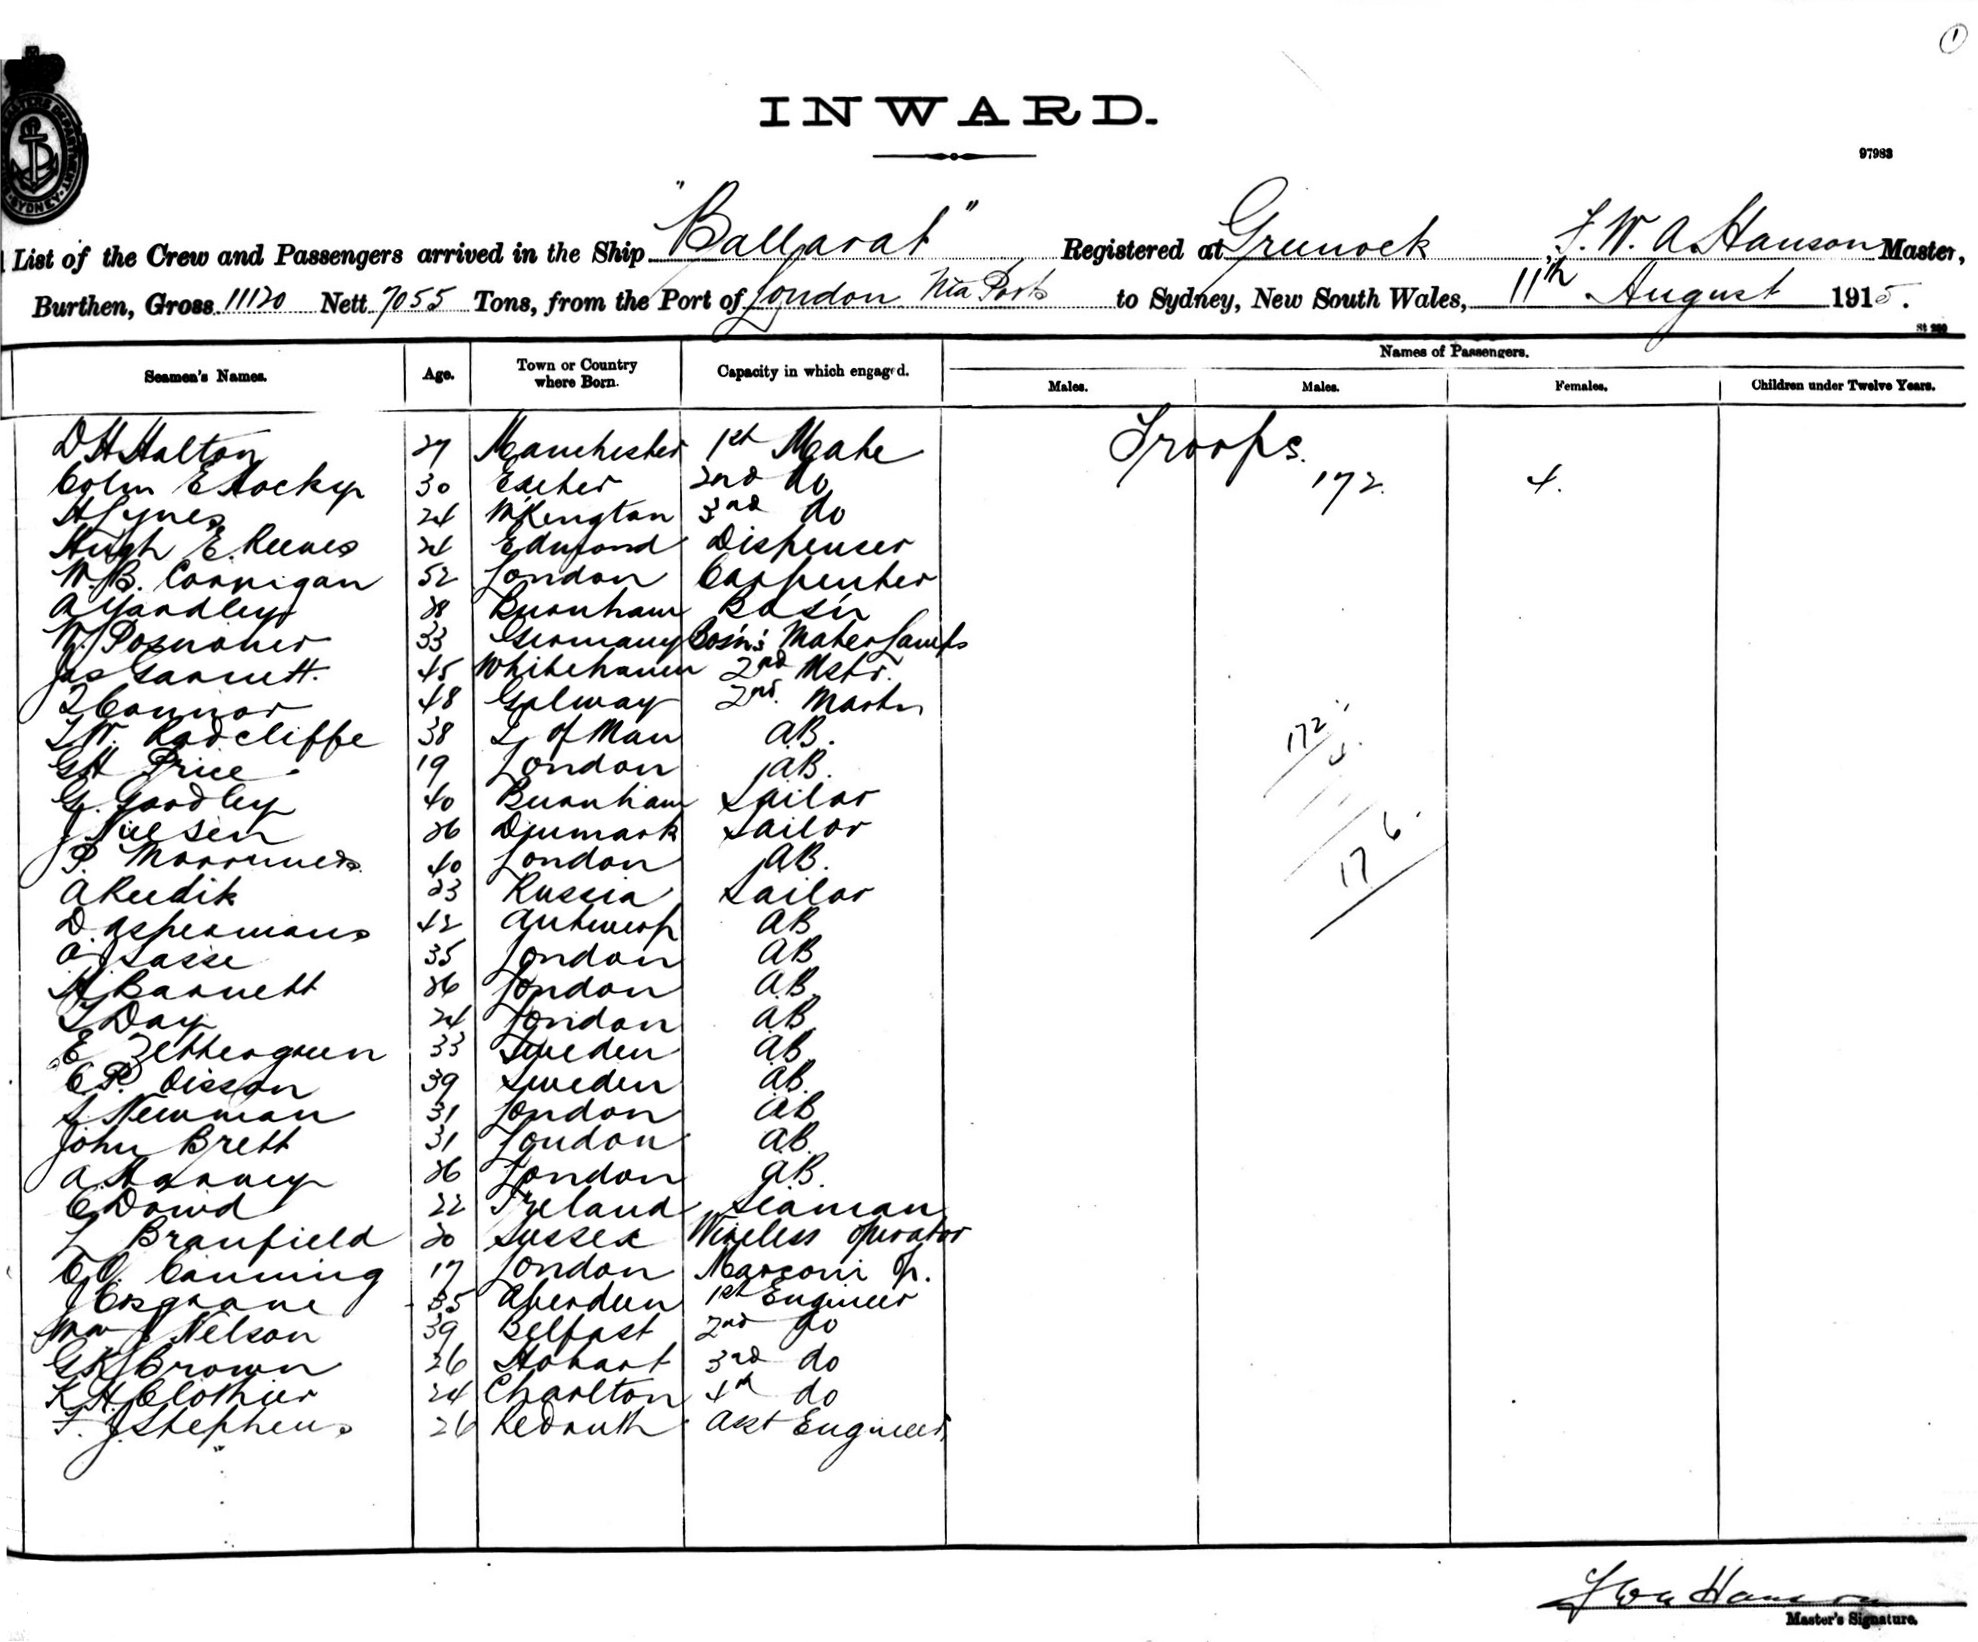 1
INWARD.
97983
List of the Crew and Passengers arrived in the Ship "Ballarat" Registered at Greenock, F. W. A Hanson Master,
Burthen, Gross 11120 Nett 7055 Tons, from the Port of London Via Ports to Sydney, New South Wales, 11th August 1915.
Seamen's Names. Age. Town or Country where Born. Capacity in which engaged. Names of Passengers.
Males. Males. Females. Children under Twelve Years.
D H Halton 27 Manchester 1st Mate Troops.
Colin E 30 Exeter 2nd do 172. 4.
H Lynes 24 3rd do
Hugh E. Reeves 24 Dispenser
W. B. Corrigan 52 London Carpenter
A Yardley 28 Burnham Bosn
W. 33 Germany Bosn's Mate & Lamps
Jas Garnett. 45 Whitehaven 2nd Mstr.
T Connor 48 Galway 2nd. Mastr
T W. Radcliffe 38 I of Man AB.
G H Price 19 London AB. 172
G. Yardley 40 Burnham Sailor
J Nielsen 26 Denmark Sailor 176.
P. 40 London AB.
A Reedik 23 Russia Sailor
D. Aspermans 42 Antwerp AB
A Sasse 35 London AB
H Barnett 26 London AB
T Day 24 London AB
E Zettergreen 33 Sweden AB
C P. Oisson 39 Sweden AB.
S Newman 31 London AB
John Brett 31 London AB
A Harvey 26 London AB.
C Dowd 22 Ireland Seaman
L Branfield 20 Sussex Wireless Operator
C O. Canning 17 London Marconi Op.
J Cosgrave 35 Aberdeen 1st Engineer
Wm J Nelson 39 Belfast 2nd do
G K Brown 26 Hobart 3rd do
K H. Clothier 24 Charlton 4th do
F. J. Stephens 26 Redruth Asst Engineer
F W A Hanson
Master's Signature.